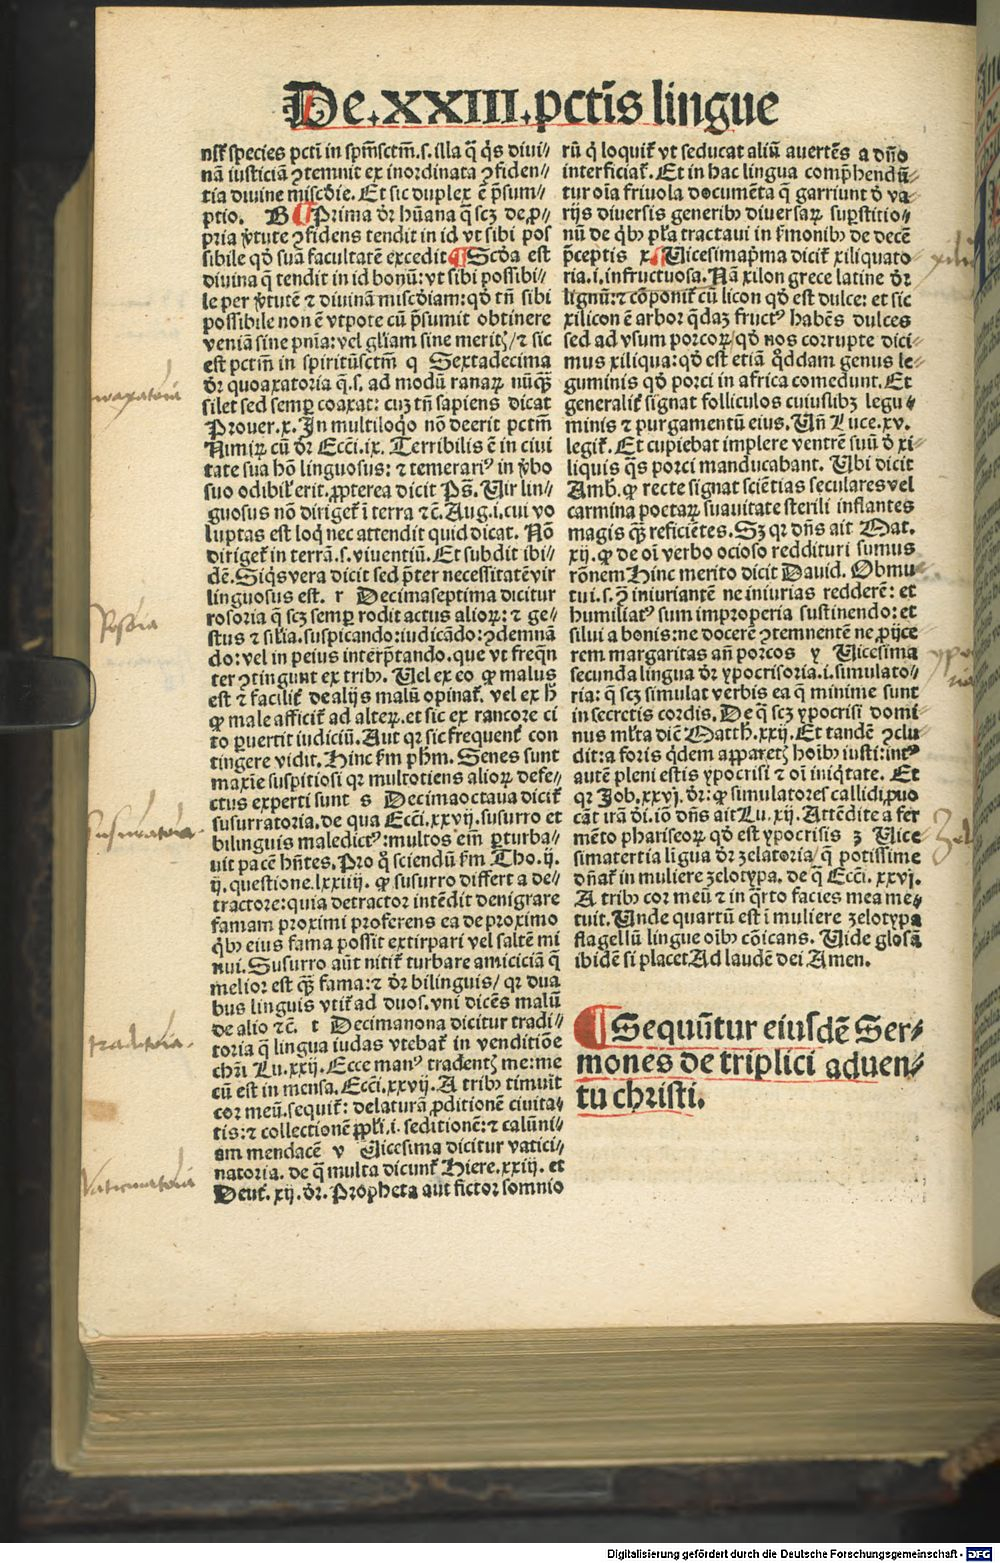 De.XXIII.pctis̄ lingue
nsẜ species pctī in spm̄sctm̄.s.illa q̄ q̇s diui⸗
nā iusticiā ꝯtemnit ex inordinata ꝯfiden⸗
tia diuine miscd̄ie. Et sic duplex ē p̄sum⸗
ptio. B ¶ Prima dr̄ hūana q̄ scꝫ de.ꝓ⸗
pria v̄tute ꝯfidens tendit in id vt sibi pos
sibile qd̄ suā facultatē excedit ¶ Scd̄a est
diuina q̄ tendit in id bonū: vt sibi possibi⸗
le per v̄tutē ⁊ diuinā miscd̄iam: qd̄ tn̄ sibi
possibile non ē vtpote cū p̄sumit obtinere
veniā sine pn̄ia: vel gl̄iam sine meritꝭ/ ⁊ sic
est pctm̄ in spiritūsctm̄ q Sextadecima
dr̄ quoaxatoria q̄.s. ad modū ranaꝝ nūqꝫ̄
silet sed semꝑ coaxat: cuꝫ tn̄ sapiens dicat
Prouer.x. In multiloq̇o nō deerit pctm̄
Nimiꝝ cū dr̄ Ecc̄i.ix. Terribilis ē in ciui
tate sua hō linguosus: ⁊ temerariꝰ in v̄bo
suo odibil̓ erit. ꝓpterea dicit Ps̄. Uir lin⸗
guosus nō dirigeť ī terra ⁊c̄. Aug.i.cui vo
luptas est loq̇ nec attendit quid dicat. Nō
dirigeť in terrā.s.viuentiū. Et subdit ibi⸗
dē. Siq̇s vera dicit sed p̄ter necessitatē vir
linguosus est. r Decimaseptima dicitur
rosoria q̄ scꝫ semꝑ rodit actus alioꝝ: ⁊ ge⸗
stus ⁊ sil̄ia.suspicando: iudicādo: ꝯdemnā
do: vel in peius interp̄tando. que vt freq̄n
ter ꝯtingunt ex tribꝰ. Uel ex eo ꝙ malus
est ⁊ faciliť de alijs malū opinať. vel ex h̄
ꝙ male afficiť ad alteꝝ. et sic ex rancore ci
to ꝑuertit iudiciū. Aut qr sic frequenť con
tingere vidit. Hinc ẜm ph̄m. Senes sunt
maxīe suspitiosi qr multotiens alioꝝ defe⸗
ctus experti sunt s Decimaoctaua diciť
susurratoria. de qua Ecc̄i.xxvij. susurro et
bilinguis maledictꝰ: multos em̄ ꝑturba⸗
uit pacē hn̄tes. Pro q̊ sciendū ẜm Tho.ij.
ij. questione.lxxiiij. ꝙ susurro differt a de⸗
tractore: quia detractor intēdit denigrare
famam proximi proferens ea de proximo
q̇bꝰ eius fama possit extirpari vel saltē mi
nui. Susurro aūt nitiť turbare amiciciā q̄
melior est qꝫ̄ fama: ⁊ dr̄ bilinguis/ qr dua
bus linguis vtiť ad duos. vni dicēs malū
de alio ⁊c̄. t Decimanona dicitur tradi⸗
toria q̄ lingua iudas vtebať in venditiōe
chr̄i Lu.xxij. Ecce manꝰ tradentꝭ me: me
cū est in mensa. Ecc̄i.xxvij. A tribꝰ timuit
cor meū. sequiť: delaturā ꝓditionē ciuita⸗
tis: ⁊ collectionē ppl̄i.i. seditionē: ⁊ calūni⸗
am mendacē v Uicesima dicitur vatici⸗
natoria. de q̄ multa dicunť Hiere.xxiij. et
Deuť. xij. dr̄. Propheta aut fictor somnio
rū q̇ loquiť vt seducat aliū auertēs a dn̄o
interficiať. Et in hac lingua comp̄hendū⸗
tur oīa friuola documēta q̄ garriunt ď va⸗
rijs diuersis generibꝰ diuersaꝝ suꝑstitio⸗
nū de q̇bꝰ pl̄a tractaui in ẜmonibꝰ de decē
p̄ceptis x ¶ Uicesimap̄ma diciť xiliquato
ria.i.infructuosa. Nā xilon grece latine dr̄
lignū: ⁊ cōponiť cū licon qd̄ est dulce: et sic
xilicon ē arbor q̄daꝫ fructꝰ habēs dulces
sed ad vsum porcoꝝ/ qd̄ nos corrupte dici⸗
mus xiliqua: qd̄ est etiā q̊ddam genus le⸗
guminis qd̄ porci in africa comedunt. Et
generaliť signat folliculos cuiuslibꝫ legu⸗
minis ⁊ purgamentū eius. Un̄ Luce.xv.
legiť. Et cupiebat implere ventrē suū ď xi⸗
liquis q̄s porci manducabant. Ubi dicit
Amb. ꝙ recte signat sciētias seculares vel
carmina poetaꝝ suauitate sterili inflantes
magis qꝫ̄ reficiētes. Sꝫ qr dn̄s ait Mat.
xij. ꝙ de oī verbo ocioso reddituri sumus
rōnem Hinc merito dicit Dauid. Obmu⸗
tui.s.ꝯ iniuriantē ne iniurias redderē: et
humiliatꝰ sum improperia sustinendo: et
silui a bonis: ne docerē ꝯtemnentē ne ꝓijce
rem margaritas an̄ porcos y Uicesima
secunda lingua dr̄ ypocrisoria.i.simulato⸗
ria: q̄ scꝫ simulat verbis ea q̄ minime sunt
in secretis cordis. De q̄ scꝫ ypocrisi domi⸗
nus ml̄ta diē Matth̄.xxij. Et tandē ꝯclu
dit: a foris q̇dem apparetꝭ hoībꝰ iusti: intꝰ
autē pleni estis ypocrisi ⁊ oī iniq̇tate. Et
qr Job.xxvj. dr̄: ꝙ simulatores callidi ꝓuo
cāt irā dī. iō dn̄s ait Lu.xij. Attēdite a fer
mēto phariseoꝝ qd̄ est ypocrisis z Uice
simatertia līgua dr̄ zelatoria/ q̄ potissime
dn̄ať in muliere zelotypa. de q̄ Ecc̄i. xxvj.
A tribꝰ cor meū ⁊ in q̇rto facies mea me⸗
tuit. Unde quartū est ī muliere zelotypa
flagellū lingue oībꝰ cōicans. Uide glosā
ibidē si placet Ad laudē dei Amen.
¶ Sequūtur eiusdē Ser⸗
mones de triplici aduen⸗
tu christi.
Rosoria
Susurratoria
traditoria
Vaticinatoria
Digitalisierung gefördert durch die Deutsche Forschungsgemeinschaft - DFG